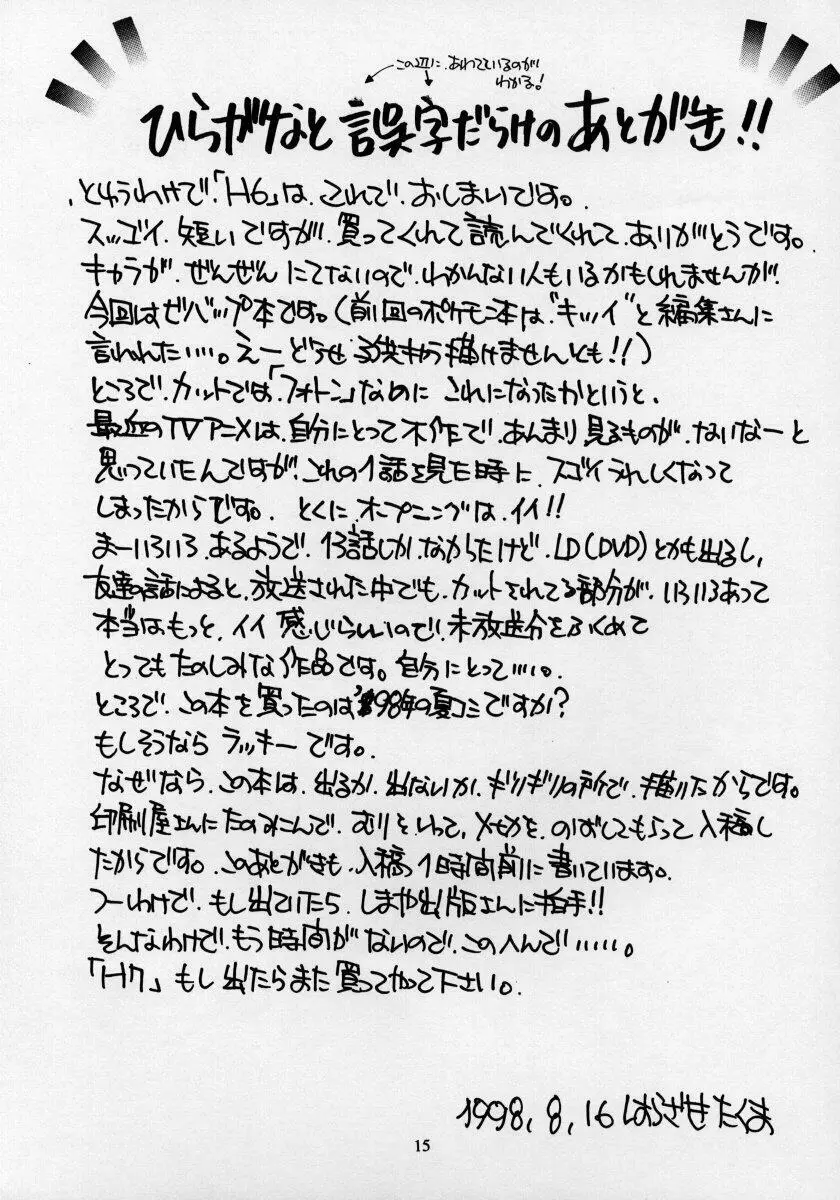 この辺に、あわてているのが
わかる!
ひらがなと誤字だらけのあとがき!!
、とゆうわけで、「H6」は、これで、おしまいです。
スッゴイ、短いですが、買ってくれて読んでくれて、ありがとうです。
キャラが、ぜんぜんにてないので、わかんない人もいるかもしれませんが、
今回はゼバップ本です。(前回のポケモン本は、"キッツイ"と編集さんに
言われた……。えーどうせ子供きり描けませんとも!!)
ところで、カットでは、「フォトン」なのに、これになったかというと、
最近のTVアニメは、自分にとって不作で、あんまり見るものが、ないなーと
思っていたんですが、これの1話を見た時に、スゴイうれしくなって
しまったからです。、とくに、オープニングは、イイ!!
まーいろいろ、あるようで、13話しか、なかったけど、LD(DVD)とかも出るし、
友達の話によると、放送された中でも、カットされてる部分が、いろいろあって
本当は、もっと、イイ感じらしいので、未放送分をふくめて
とってもたのしみな作品です。自分にとって……。
ところで、この本を買ったのは'98年の夏コミですか?
もしそうならラッキーです。
なぜなら、この本は、出るか、出ないか、ギリギリの所で、描いたからです。
印刷屋さんにたのみこんで、むりをいって、〆切を、のばしてもらって入稿し
たからです。このあとがきも、入稿1時間前に書いています。
つーわけで、もし出ていたら、しまや出版さんに拍手!!
そんなわけで、もう時間がないので、このへんで……。
「H7」もし出たらまた買ってやって下さい。
1998,8,16 はらざきたくま
15